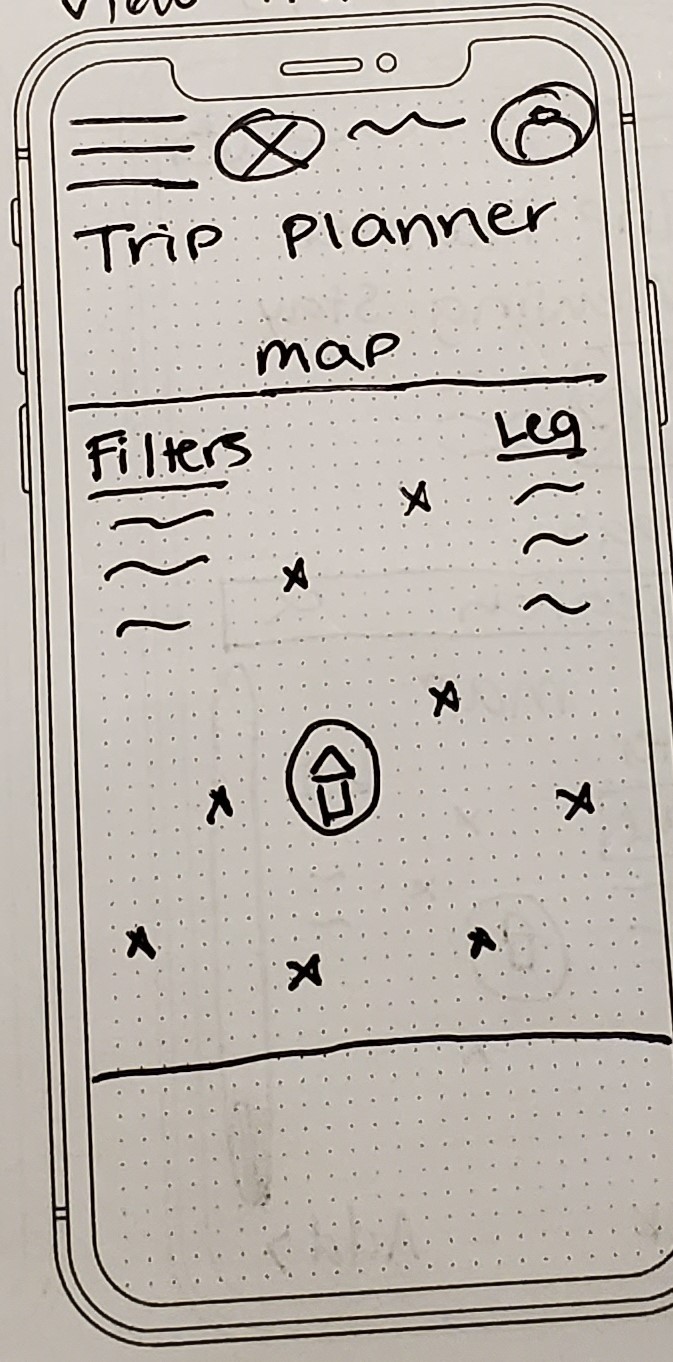 View
Trip Planner
map
Filters
Leg